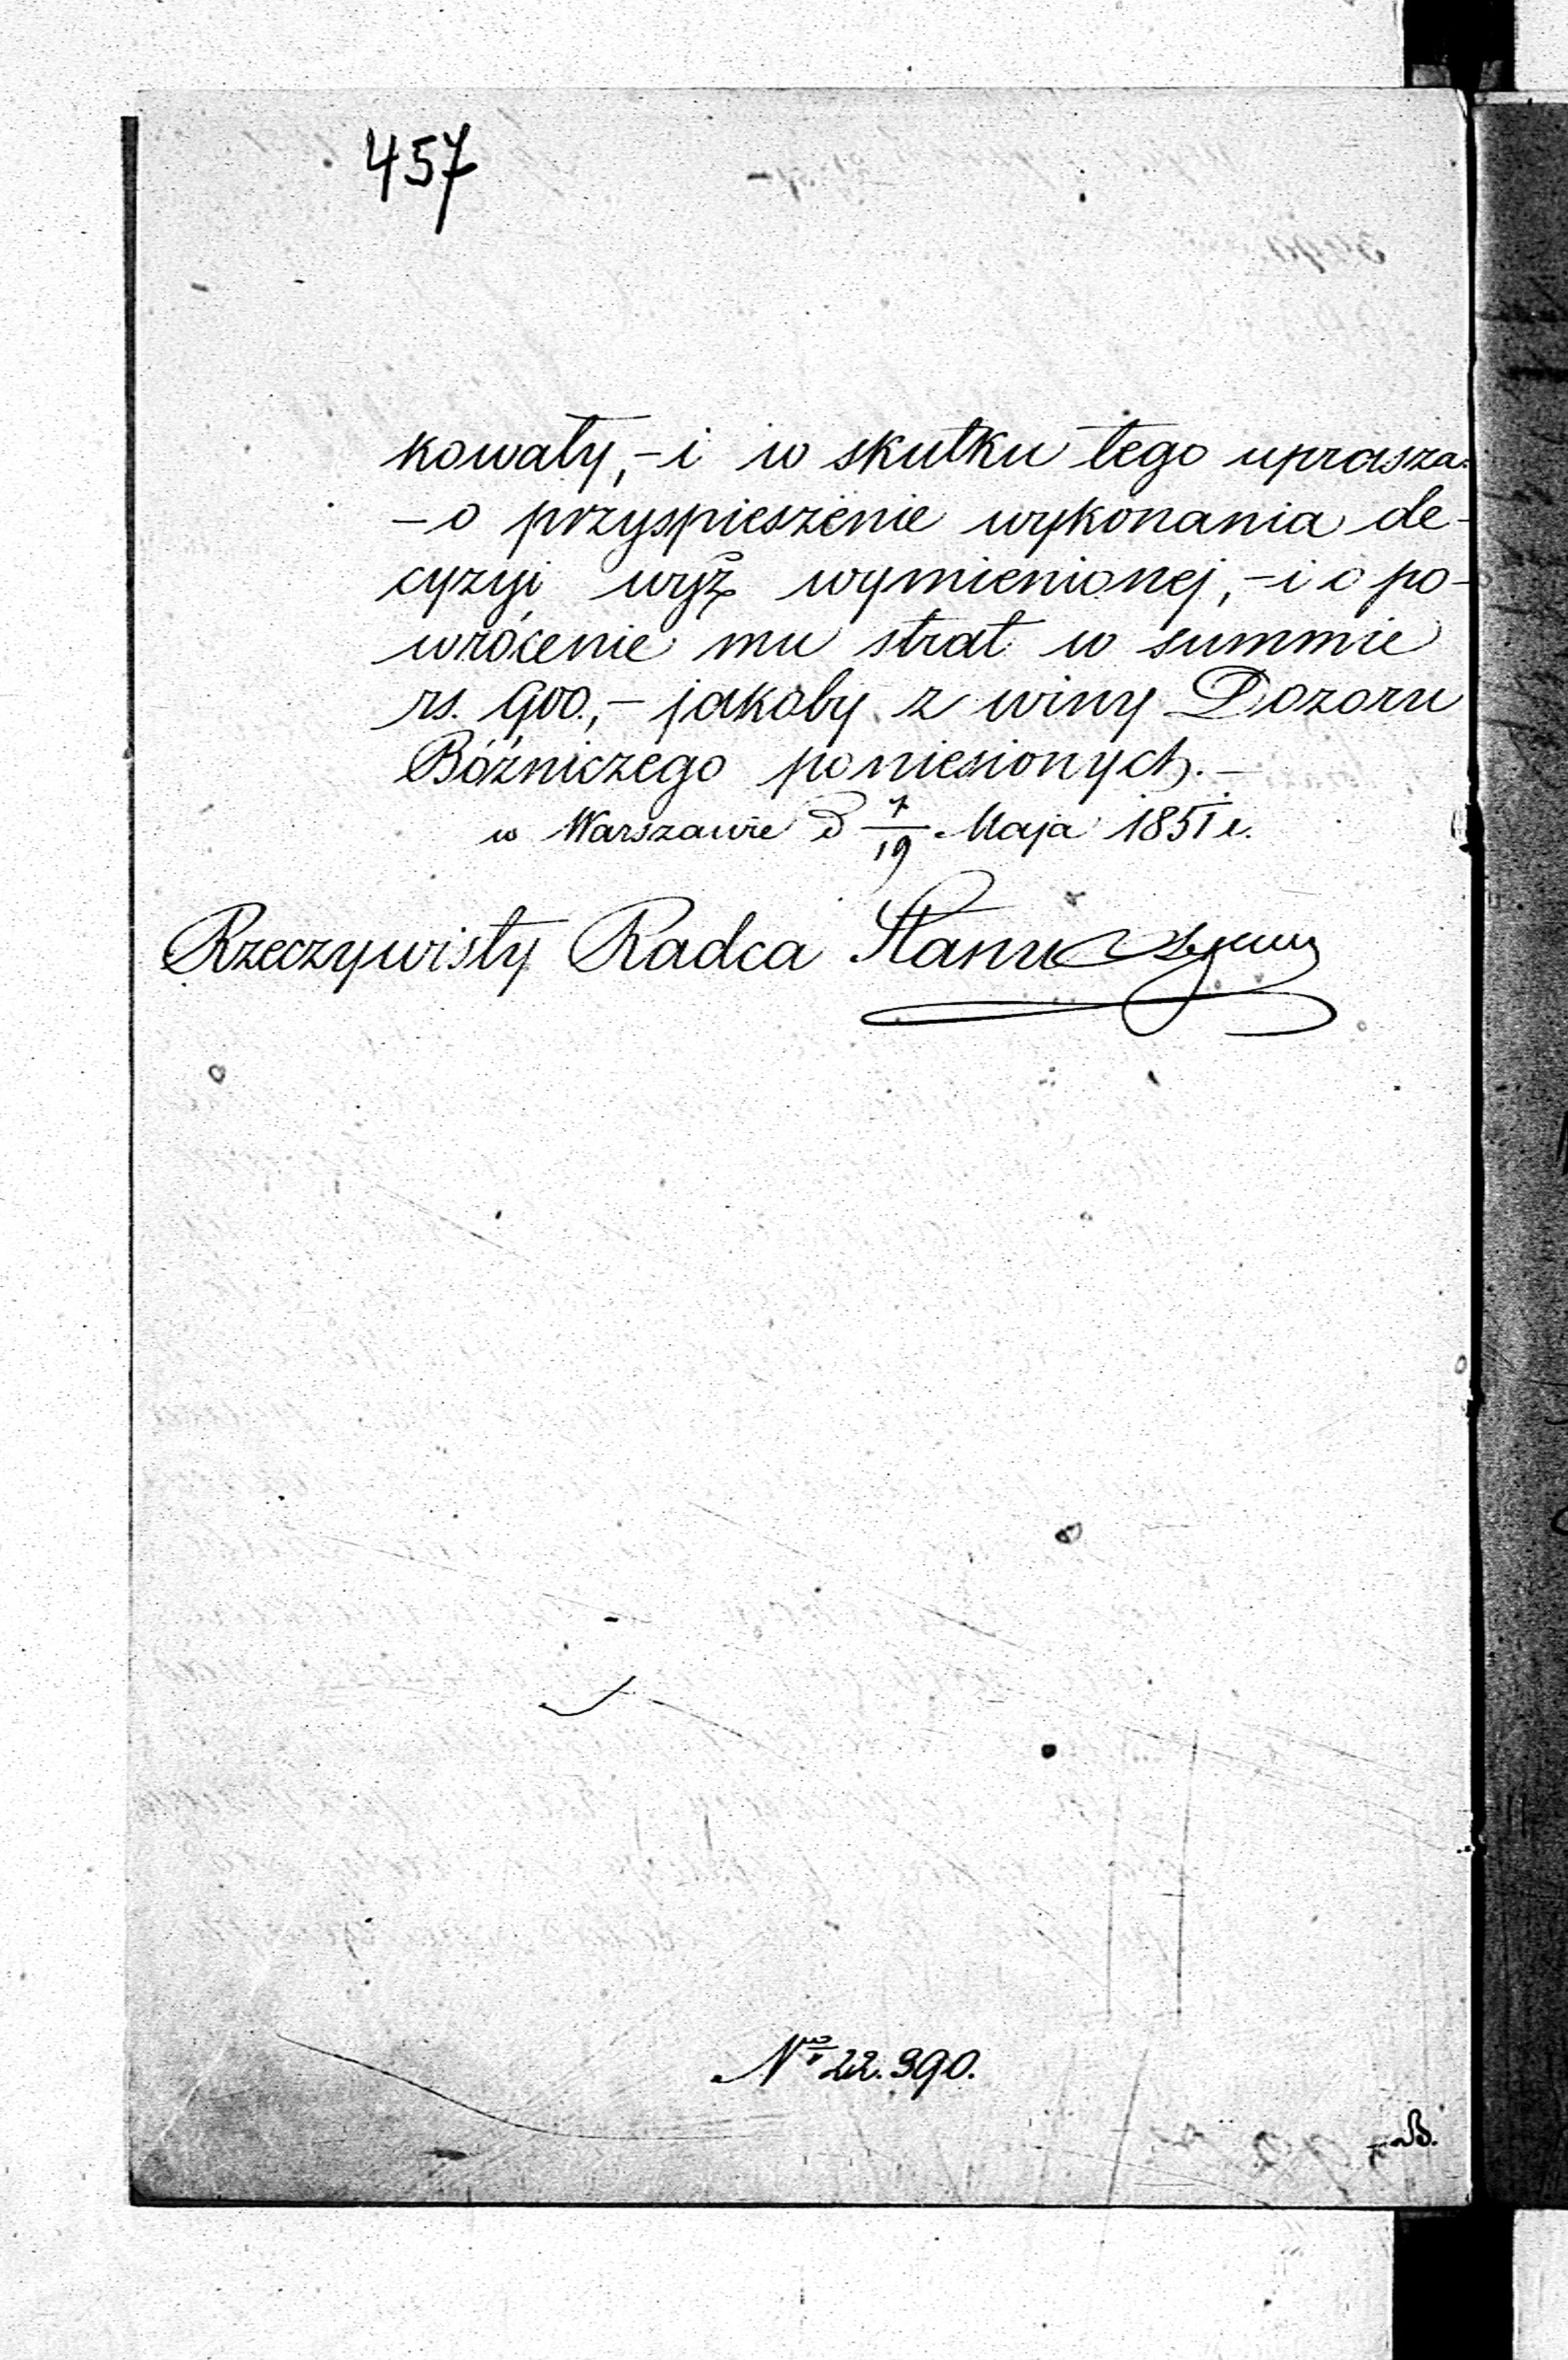 457
kowały, – i w skutku tego uprasza.
– o przyspieszenie wykonania de-
cyzyi wyż wymienionej, – i o po-
wrócenie mu strat w summie
rs. 900., – jakoby z winy Dozoru
Bóżniczego poniesionych. –
w Warszawie d 7/19 Maja 1851 r.
Rzeczywisty Radca Stanu
No 22.390.
B.